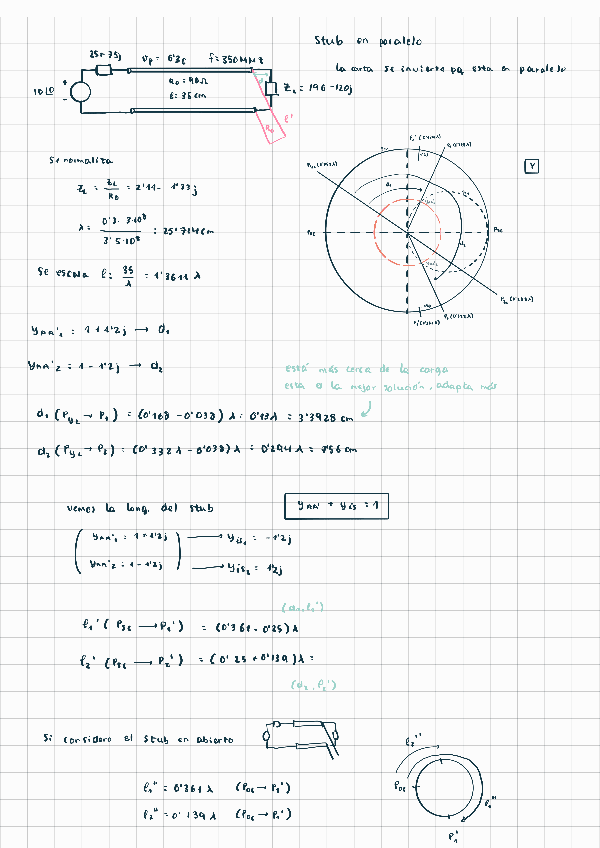 Stub en paralelo
la carta se invierte pq esta en paralelo
25+75j
Vp = 0'3c
f=350MHz
R0 = 90Ω
ℓ = 35cm
10 L0
ZL = 196-120j
ℓ'
R0
Y
Se normaliza
ZL = ZL / R0 = 2'11 - 1'33j
λ = 0'3 · 3·10⁸ / 3'5·10⁸ = 25'714cm
Se escala ℓ = 35 / λ = 1'3611 λ
yAA'1 = 1+1'2j → d1
yAA'2 = 1-1'2j → d2
está más cerca de la carga
esta a la mejor solución, adapta más
d1 (PyL → P1) = (0'168 - 0'038) λ = 0'13λ = 3'3928 cm
d2 (PyL → P2) = (0'332λ - 0'038)λ = 0'294λ = 7'56cm
vemos la long. del stub
yAA' + yis = 1
yAA'1 = 1+1'2j → yis1 = -1'2j
yAA'2 = 1-1'2j → yis2 = 1'2j
(d1, ℓ1')
ℓ1' (Psc → P1') = (0'361 - 0'25)λ
ℓ2' (Psc → P2') = (0'25 + 0'139)λ =
(d2, ℓ2')
Si considero el stub en abierto
ℓ1'' = 0'361 λ (Poc → P1')
ℓ2'' = 0'139 λ (Poc → P2')
ℓ2''
Poc
ℓ1''
P1'